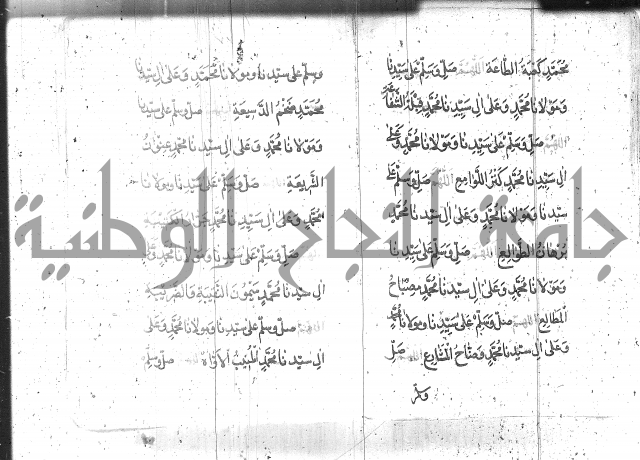 محمد كعبة الطاعة اللهم صل وسلم على سيدنا
ومولانا محمد وعلى ال سيدنا محمد قبلة
اللهم صل وسلم على سيدنا ومولانا محمد وعلى
ال سيدنا محمد كنز اللوامع اللهم صل وسلم على
سيدنا ومولانا محمد وعلى ال سيدنا محمد
برهان الطوالع اللهم صل وسلم على سيدنا
ومولانا محمد وعلى ال سيدنا محمد مصباح
المطالع اللهم صل وسلم على سيدنا ومولانا محمد
وعلى ال سيدنا محمد ومفتاح الشارع اللهم صل
وسلم
وسلم على سيدنا ومولانا محمد وعلى ال سيدنا
محمد ضخم الدسيعة اللهم صل وسلم على سيدنا
ومولانا محمد وعلى ال سيدنا محمد
الشريعة اللهم صل وسلم على سيدنا ومولانا
محمد وعلى ال سيدنا محمد
اللهم صل وسلم على سيدنا ومولانا محمد وعلى
ال سيدنا محمد ميمون النقيبة والضريبة
اللهم صل وسلم على سيدنا ومولانا محمد وعلى
ال سيدنا محمد المنيب الأواه اللهم صل وسلم
جامعة النجاح الوطنية